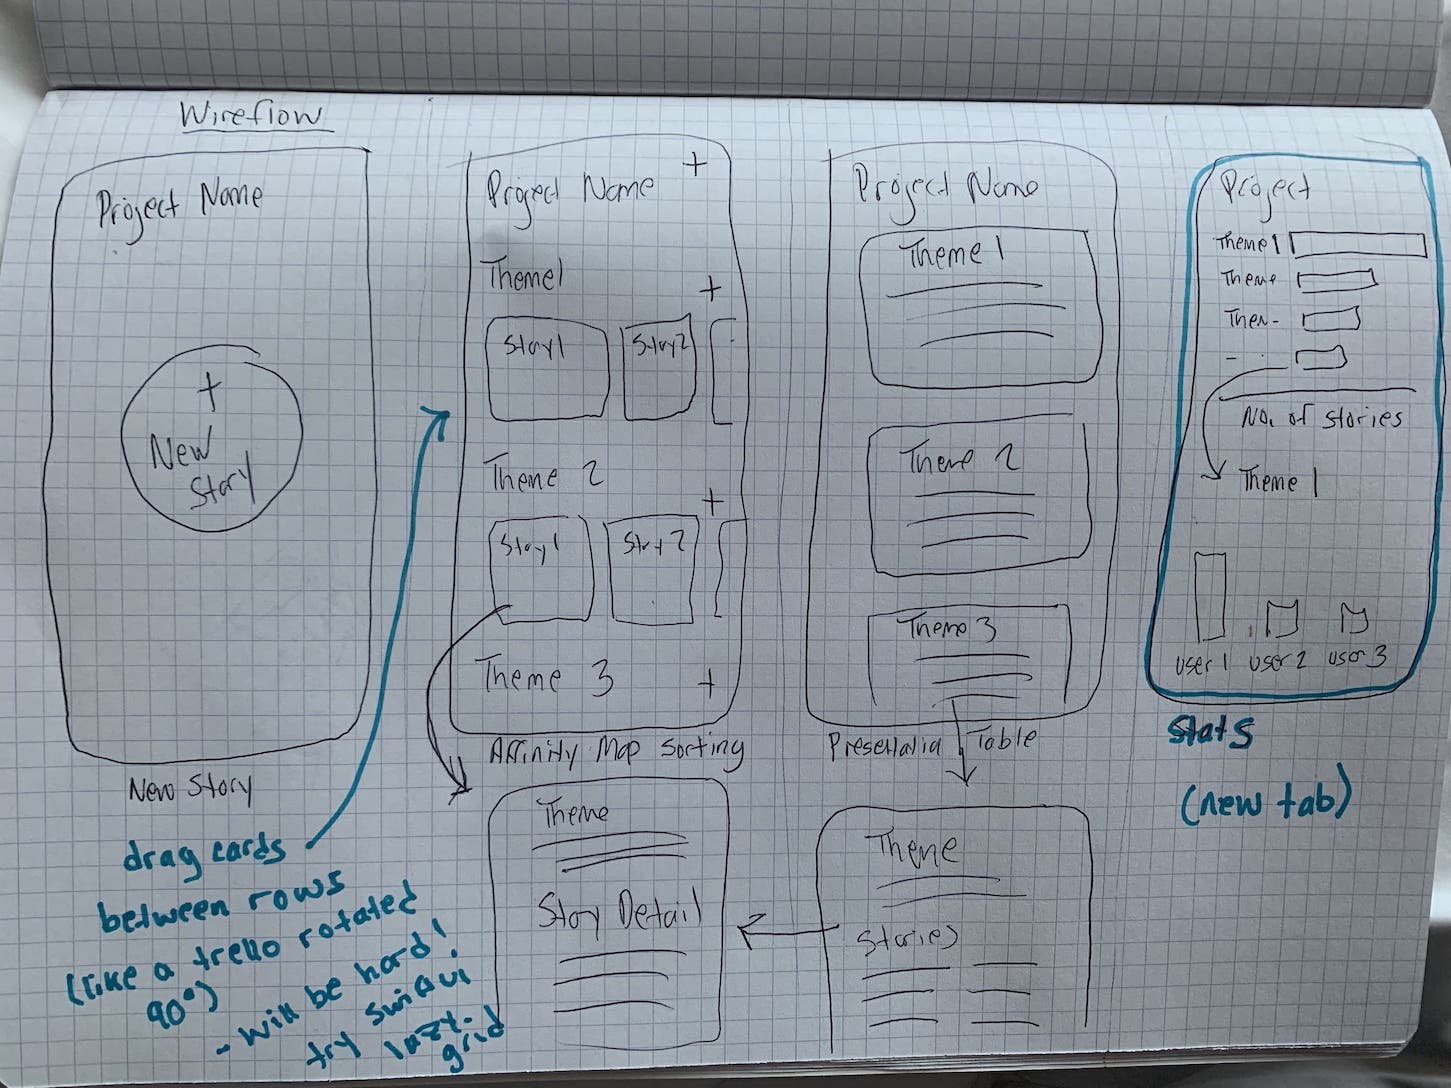 Wireflow
Project Name
+
New
Story
New Story
drag cards
between rows
(like a trello rotated
90°)
- will be hard!
try swiftui
lazy-
grid
Project Name +
Theme 1
+
Story 1 Story 2
Theme 2
+
Story 1 Story 2
Theme 3 +
Affinity Map Sorting
Theme
Story Detail
Project Name
Theme 1
Theme 2
Theme 3
Table
Theme
Stories
Project
Theme 1
Theme
Them-
- -
No. of stories
Theme 1
user 1 user 2 user 3
Stats
(new tab)